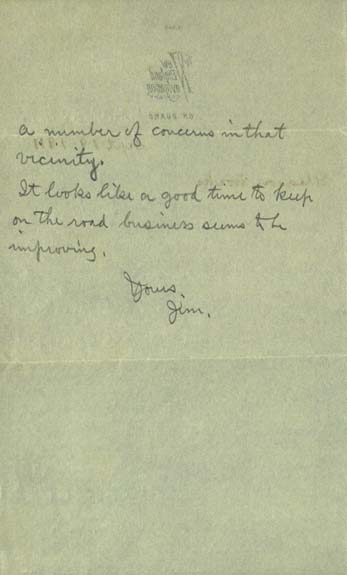 a number of concerns in that
vicinity.
It looks like a good time to keep
on the road business seems to be
improving.
Yours,
Jim.